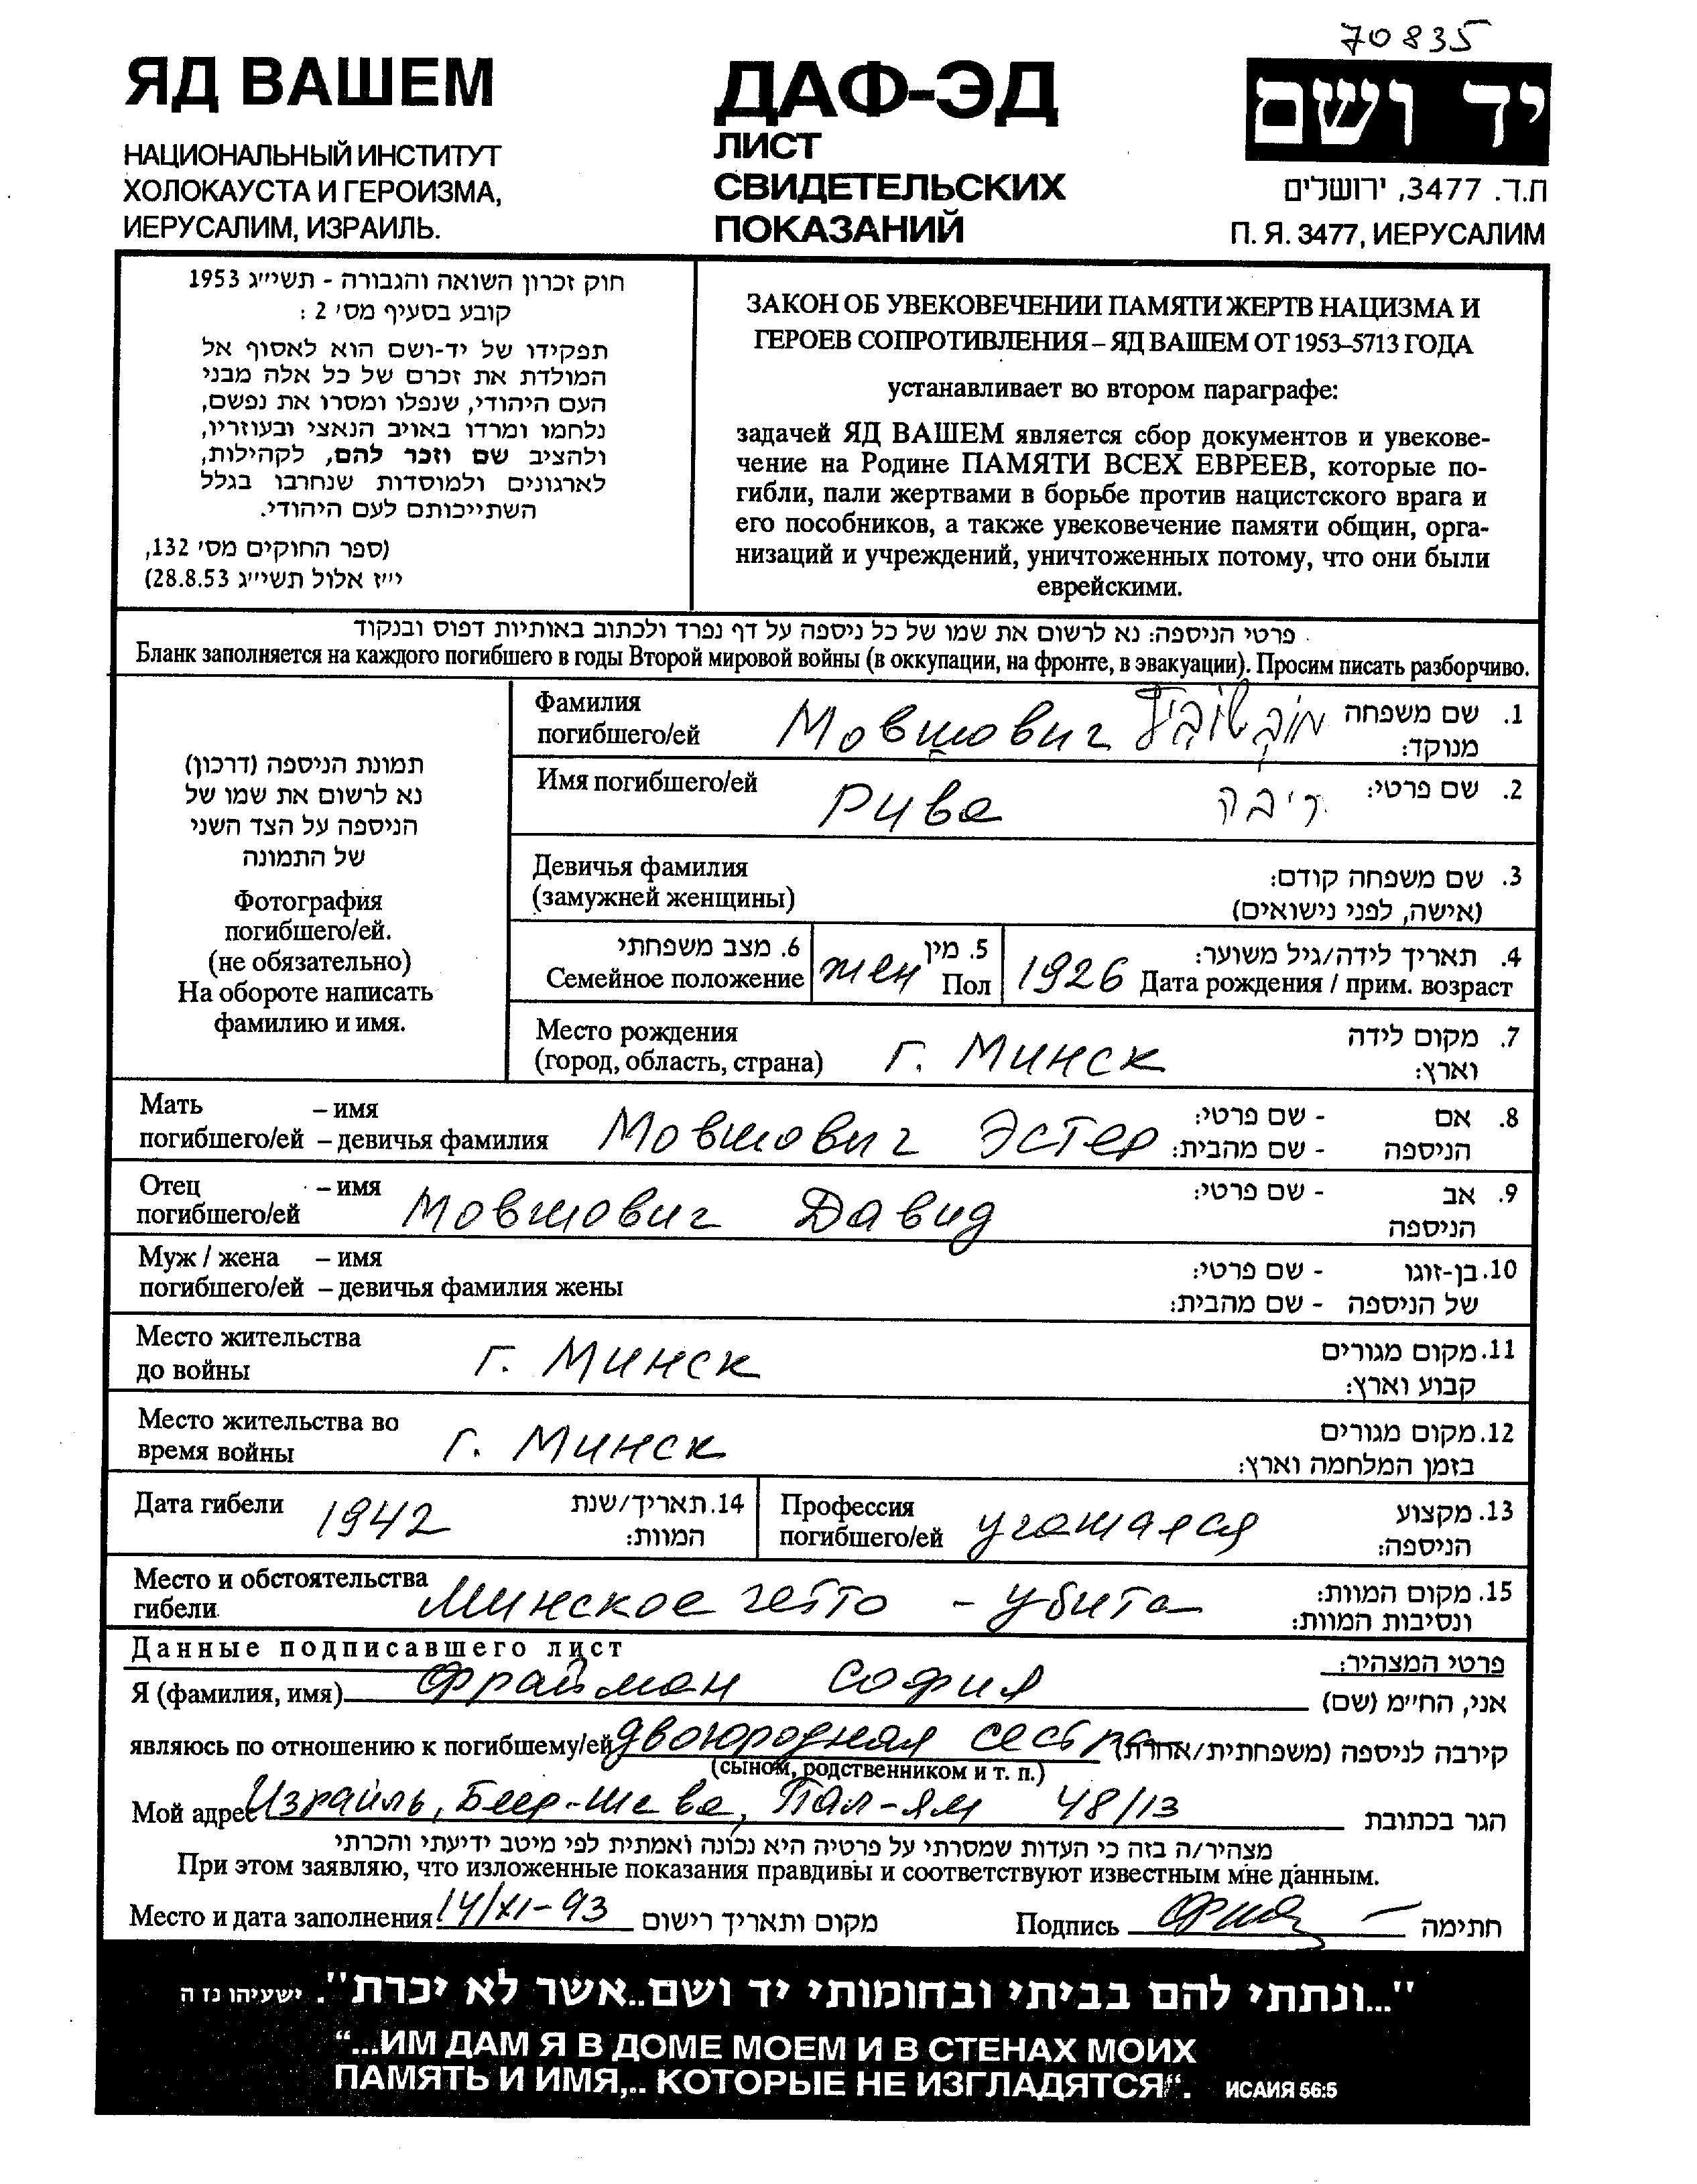 70835
ЯД ВАШЕМ
НАЦИОНАЛЬНЫЙ ИНСТИТУТ
ХОЛОКАУСТА И ГЕРОИЗМА,
ИЕРУСАЛИМ, ИЗРАИЛЬ.
ДАФ-ЭД
ЛИСТ
СВИДЕТЕЛЬСКИХ
ПОКАЗАНИЙ
יד ושם
ת.ד. 3477, ירושלים
П. Я. 3477, ИЕРУСАЛИМ
חוק זכרון השואה והגבורה - תשי״ג 1953
קובע בסעיף מס׳ 2 :
תפקידו של יד-ושם הוא לאסוף אל
המולדת את זכרם של כל אלה מבני
העם היהודי, שנפלו ומסרו את נפשם,
נלחמו ומרדו באויב הנאצי ובעוזריו,
ולהציב שם וזכר להם, לקהילות,
לארגונים ולמוסדות שנחרבו בגלל
השתייכותם לעם היהודי.
(ספר החוקים מס׳ 132,
י״ז אלול תשי״ג 28.8.53)
ЗАКОН ОБ УВЕКОВЕЧЕНИИ ПАМЯТИ ЖЕРТВ НАЦИЗМА И
ГЕРОЕВ СОПРОТИВЛЕНИЯ – ЯД ВАШЕМ ОТ 1953–5713 ГОДА
устанавливает во втором параграфе:
задачей ЯД ВАШЕМ является сбор документов и увекове-
чение на Родине ПАМЯТИ ВСЕХ ЕВРЕЕВ, которые по-
гибли, пали жертвами в борьбе против нацистского врага и
его пособников, а также увековечение памяти общин, орга-
низаций и учреждений, уничтоженных потому, что они были
еврейскими.
פרטי הניספה: נא לרשום את שמו של כל ניספה על דף נפרד ולכתוב באותיות דפוס ובנקוד
Бланк заполняется на каждого погибшего в годы Второй мировой войны (в оккупации, на фронте, в эвакуации). Просим писать разборчиво.
תמונת הניספה (דרכון)
נא לרשום את שמו של
הניספה על הצד השני
של התמונה
Фотография
погибшего/ей.
(не обязательно)
На обороте написать
фамилию и имя.
Фамилия
погибшего/ей Мовшович מובשוביץ 1. שם משפחה
מנוקד:
Имя погибшего/ей Рива ריבה 2. שם פרטי:
Девичья фамилия 3. שם משפחה קודם:
(замужней женщины) (אישה, לפני נישואים)
6. מצב משפחתי 5. מין 4. תאריך לידה/גיל משוער:
Семейное положение жен Пол 1926 Дата рождения / прим. возраст
Место рождения 7. מקום לידה
(город, область, страна) г. Минск וארץ:
Мать – имя 8. אם - שם פרטי:
погибшего/ей – девичья фамилия Мовшович Эстер הניספה - שם מהבית:
Отец – имя 9. אב - שם פרטי:
погибшего/ей Мовшович Давид הניספה
Муж / жена – имя 10. בן-זוגו - שם פרטי:
погибшего/ей – девичья фамилия жены של הניספה - שם מהבית:
Место жительства 11. מקום מגורים
до войны г. Минск קבוע וארץ:
Место жительства во 12. מקום מגורים
время войны г. Минск בזמן המלחמה וארץ:
Дата гибели 1942 14. תאריך/שנת
המוות:
Профессия 13. מקצוע
погибшего/ей учащаяся הניספה:
Место и обстоятельства 15. מקום המוות:
гибели. Минское гетто - убита ונסיבות המוות:
Данные подписавшего лист פרטי המצהיר:
Я (фамилия, имя) Фрайман София אני, החי״מ (שם)
являюсь по отношению к погибшему/ей двоюродная сестра קירבה לניספה (משפחתית/אחרת)
(сыном, родственником и т. п.)
Мой адрес Израйль, Беер-Шева, Пал-Ям 48/13 הגר בכתובת
מצהיר/ה בזה כי העדות שמסרתי על פרטיה היא נכונה ואמתית לפי מיטב ידיעתי והכרתי
При этом заявляю, что изложенные показания правдивы и соответствуют известным мне данным.
Место и дата заполнения 14/XI-93 מקום ותאריך רישום Подпись חתימה
"...ונתתי להם בביתי ובחומותי יד ושם..אשר לא יכרת". ישעיהו נז ה
“...ИМ ДАМ Я В ДОМЕ МОЕМ И В СТЕНАХ МОИХ
ПАМЯТЬ И ИМЯ,.. КОТОРЫЕ НЕ ИЗГЛАДЯТСЯ“. ИСАИЯ 56:5